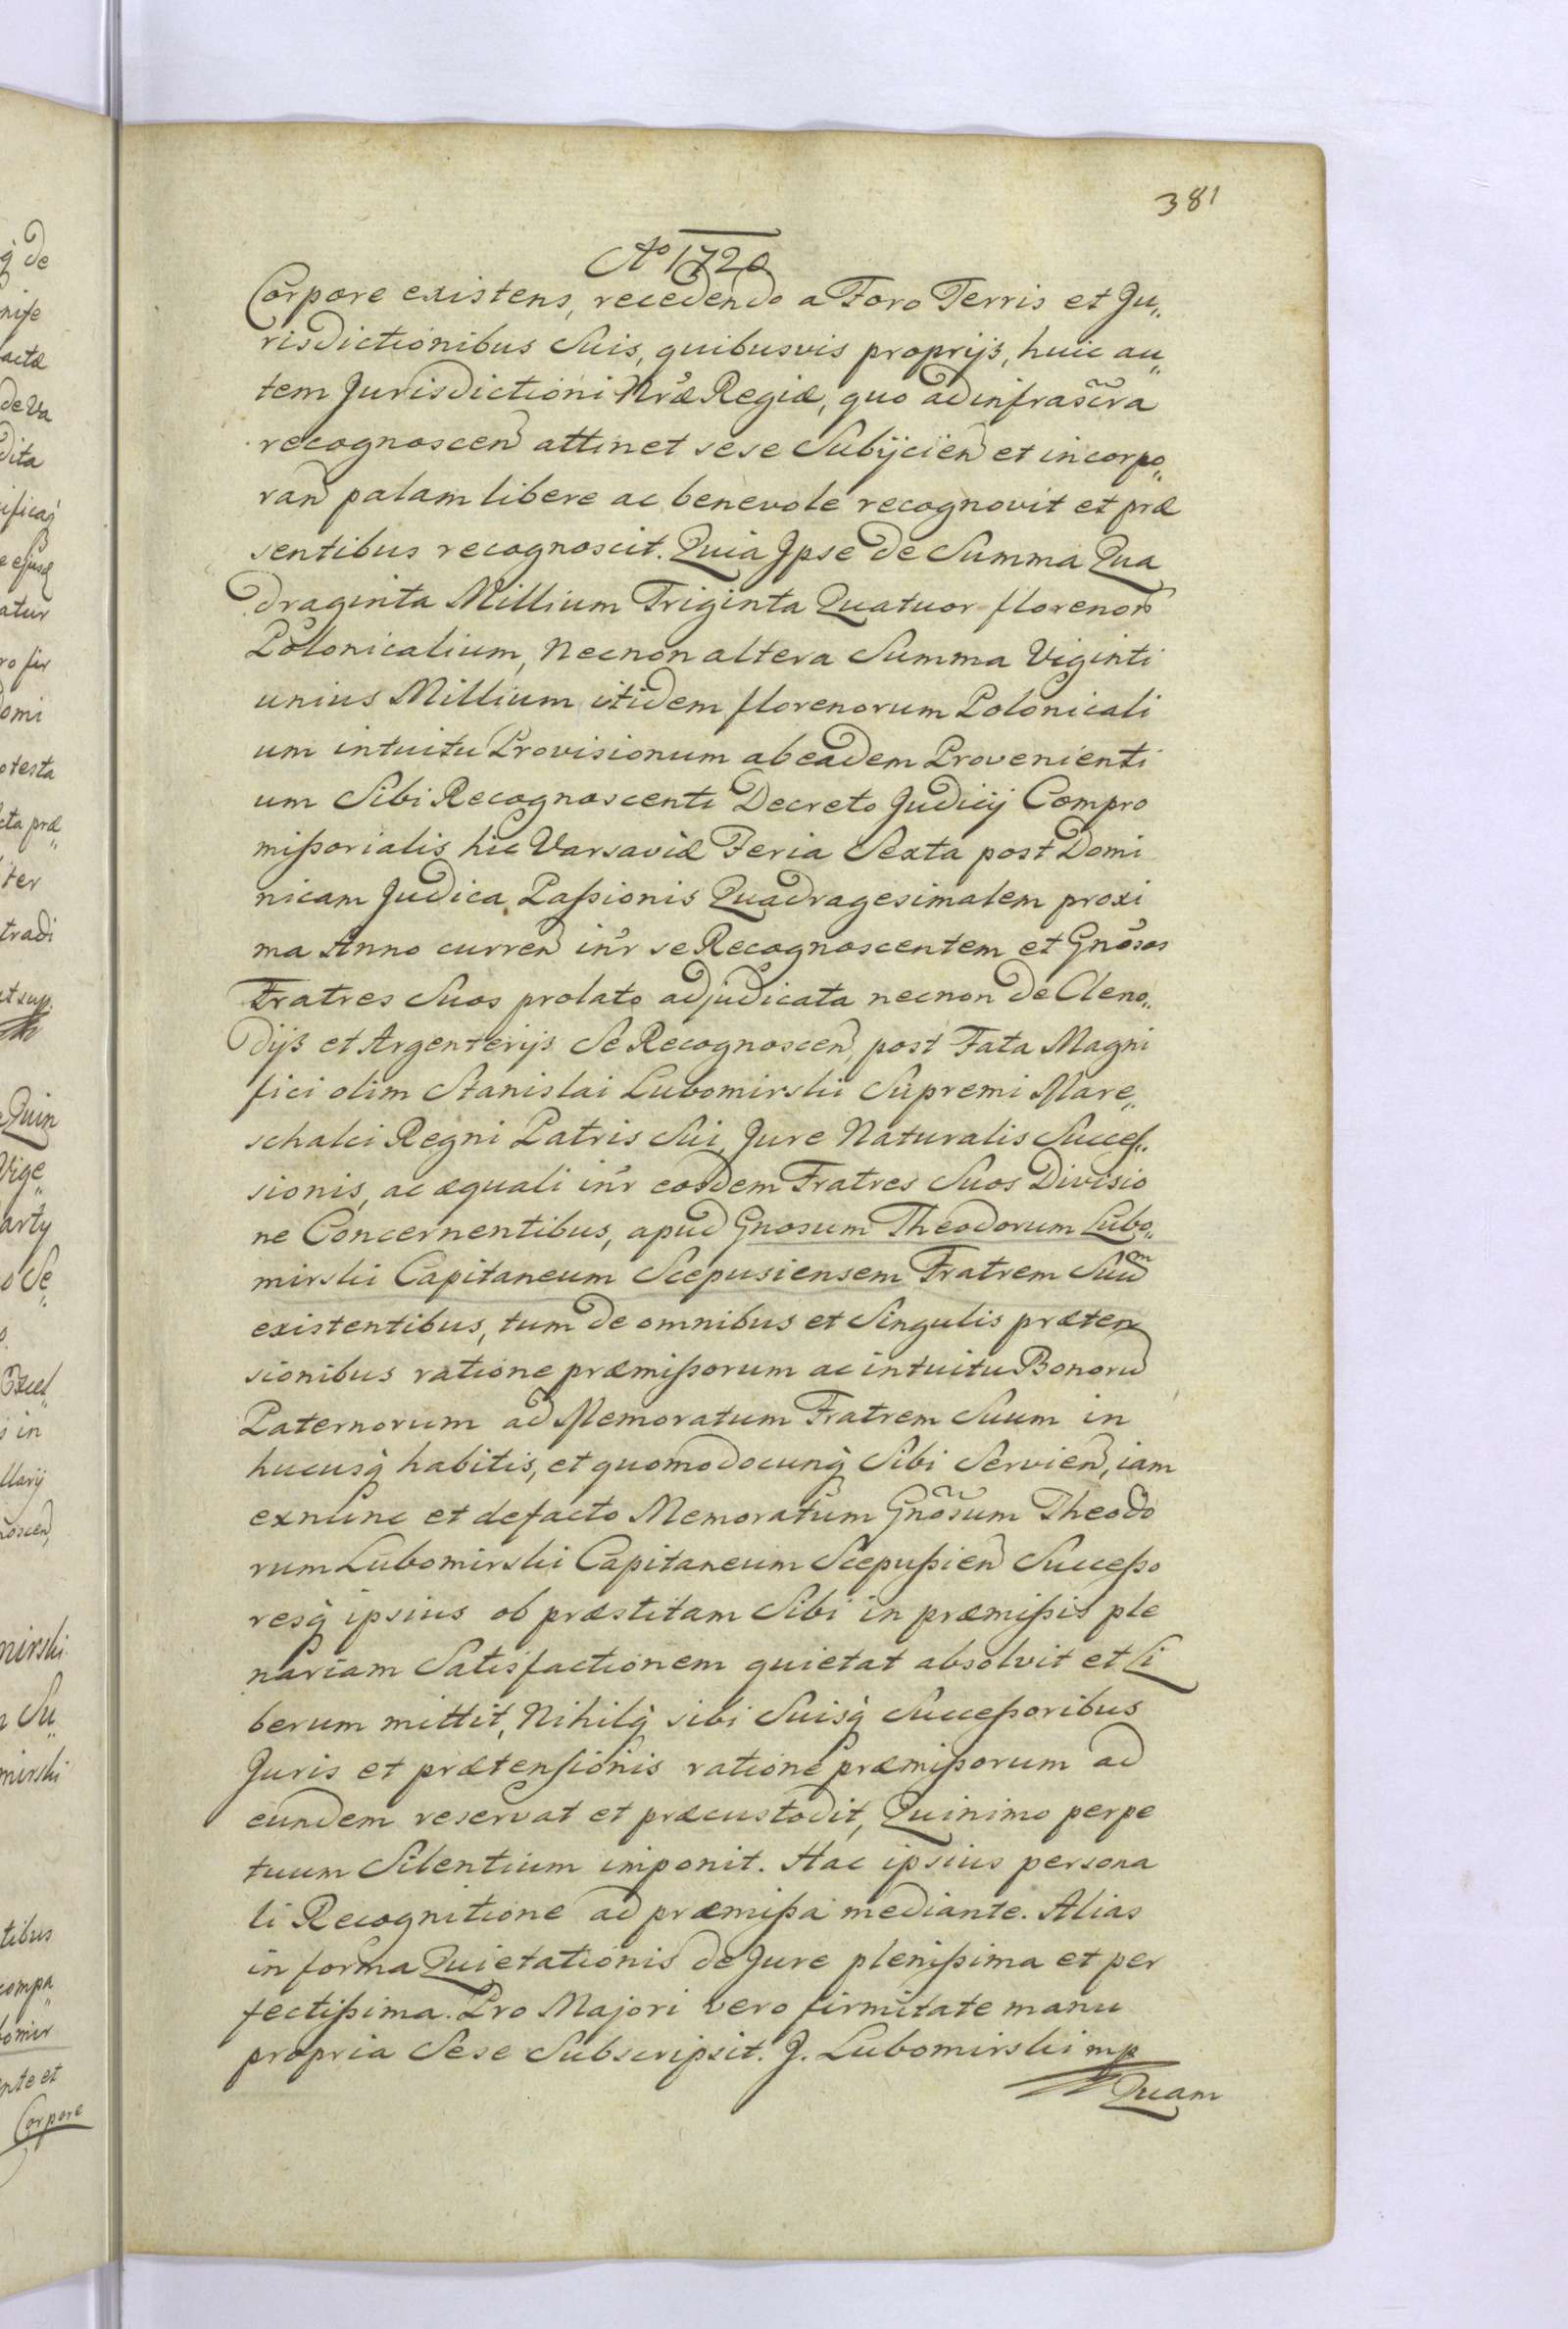 381
Ao 1720
Corpore existens, recedendo a Foro Terris et Ju„
risdictionibus Suis, quibusvis proprijs, huic au„
tem Jurisdictioni Nrae Regiae, quo ad infrascra
recognoscen attinet sese Subijcien et incorpo„
ran palam libere ac benevole recognovit et prae
sentibus recognoscit. Quia Ipse de Summa Qua
draginta Millium Triginta Quatuor florenor
Polonicalium, Necnon altera Summa Viginti
unius Millium itidem florenorum Polonicali
um intuitu Provisionum ab eadem Provenienti
um Sibi Recognoscenti Decreto Judicij Compro
missorialis hic Varsaviae Feria Sexta post Domi
nicam Judica Passionis Quadragesimalem proxi
ma Anno curren inr se Recognoscentem et Gnosos
Fratres Suos prolato adjudicata necnon de Cleno„
dijs et Argenterijs Se Recognoscen, post Fata Magni
fici olim Stanislai Lubomirski Supremi Mare„
schalci Regni Patris Sui, Jure Naturalis Succes„
sionis, ac aequali inr eosdem Fratres Suos Divisio
ne Concernentibus, apud Gnosum Theodorum Lubo„
mirski Capitaneum Scepusiensem Fratrem Suum
existentibus, tum de omnibus et Singulis praeten
sionibus ratione praemissorum ac intuitu Bonoru
Paternorum ad Memoratum Fratrem Suum in
hucusq habitis, et quomodocunq Sibi Servien, iam
exnunc et defacto Memoratum Gnosum Theodo
rum Lubomirski Capitaneum Scepussien Successo
resq ipsius ob praestitam Sibi in praemissis ple
nariam Satisfactionem quietat absolvit et Li
berum mittit, Nihilq sibi Suisq Successoribus
Juris et praetensionis ratione praemissorum ad
eundem reservat et praecustodit, Quinimo perpe
tuum Silentium imponit. Hac ipsius persona
li Recognitione ad praemissa mediante. Alias
in forma Quietationis de Jure plenissima et per
fectissima. Pro Majori vero firmitate manu
propria Sese Subscripsit. J. Lubomirski mp
Quam